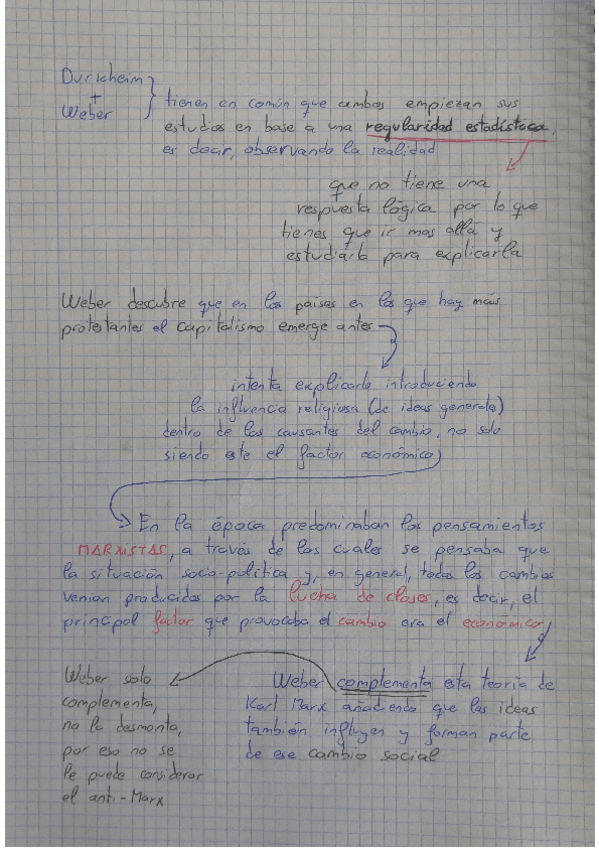 Durkheim
+
Weber
tienen en común que ambos empiezan sus
estudios en base a una regularidad estadística,
es decir, observando la realidad
que no tiene una
respuesta lógica por lo que
tienes que ir mas allá y
estudiarla para explicarla
Weber descubre que en los países en los que hay más
protestantes el capitalismo emerge antes
intenta explicarlo introduciendo
la influencia religiosa (de ideas generales)
dentro de los causantes del cambio, no solo
siendo este el factor económico)
En la época predominaban los pensamientos
MARXISTAS, a través de los cuales se pensaba que
la situación socio-política y, en general, todos los cambios
venían producidos por la lucha de clases, es decir, el
principal factor que provocaba el cambio era el económico
Weber complementa esta teoría de
Karl Marx añadiendo que las ideas
también influyen y forman parte
de ese cambio social
Weber solo
complementa,
no la desmonta,
por eso no se
le puede considerar
el anti-Marx